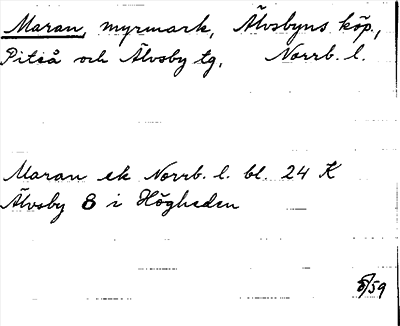 Maran, myrmark, Älvsbyns köp.,
Piteå och Älvsby tg, Norrb. l.
Maran ek Norrb. l. bl. 24 K
Älvsby 8 i Högheden
8/59